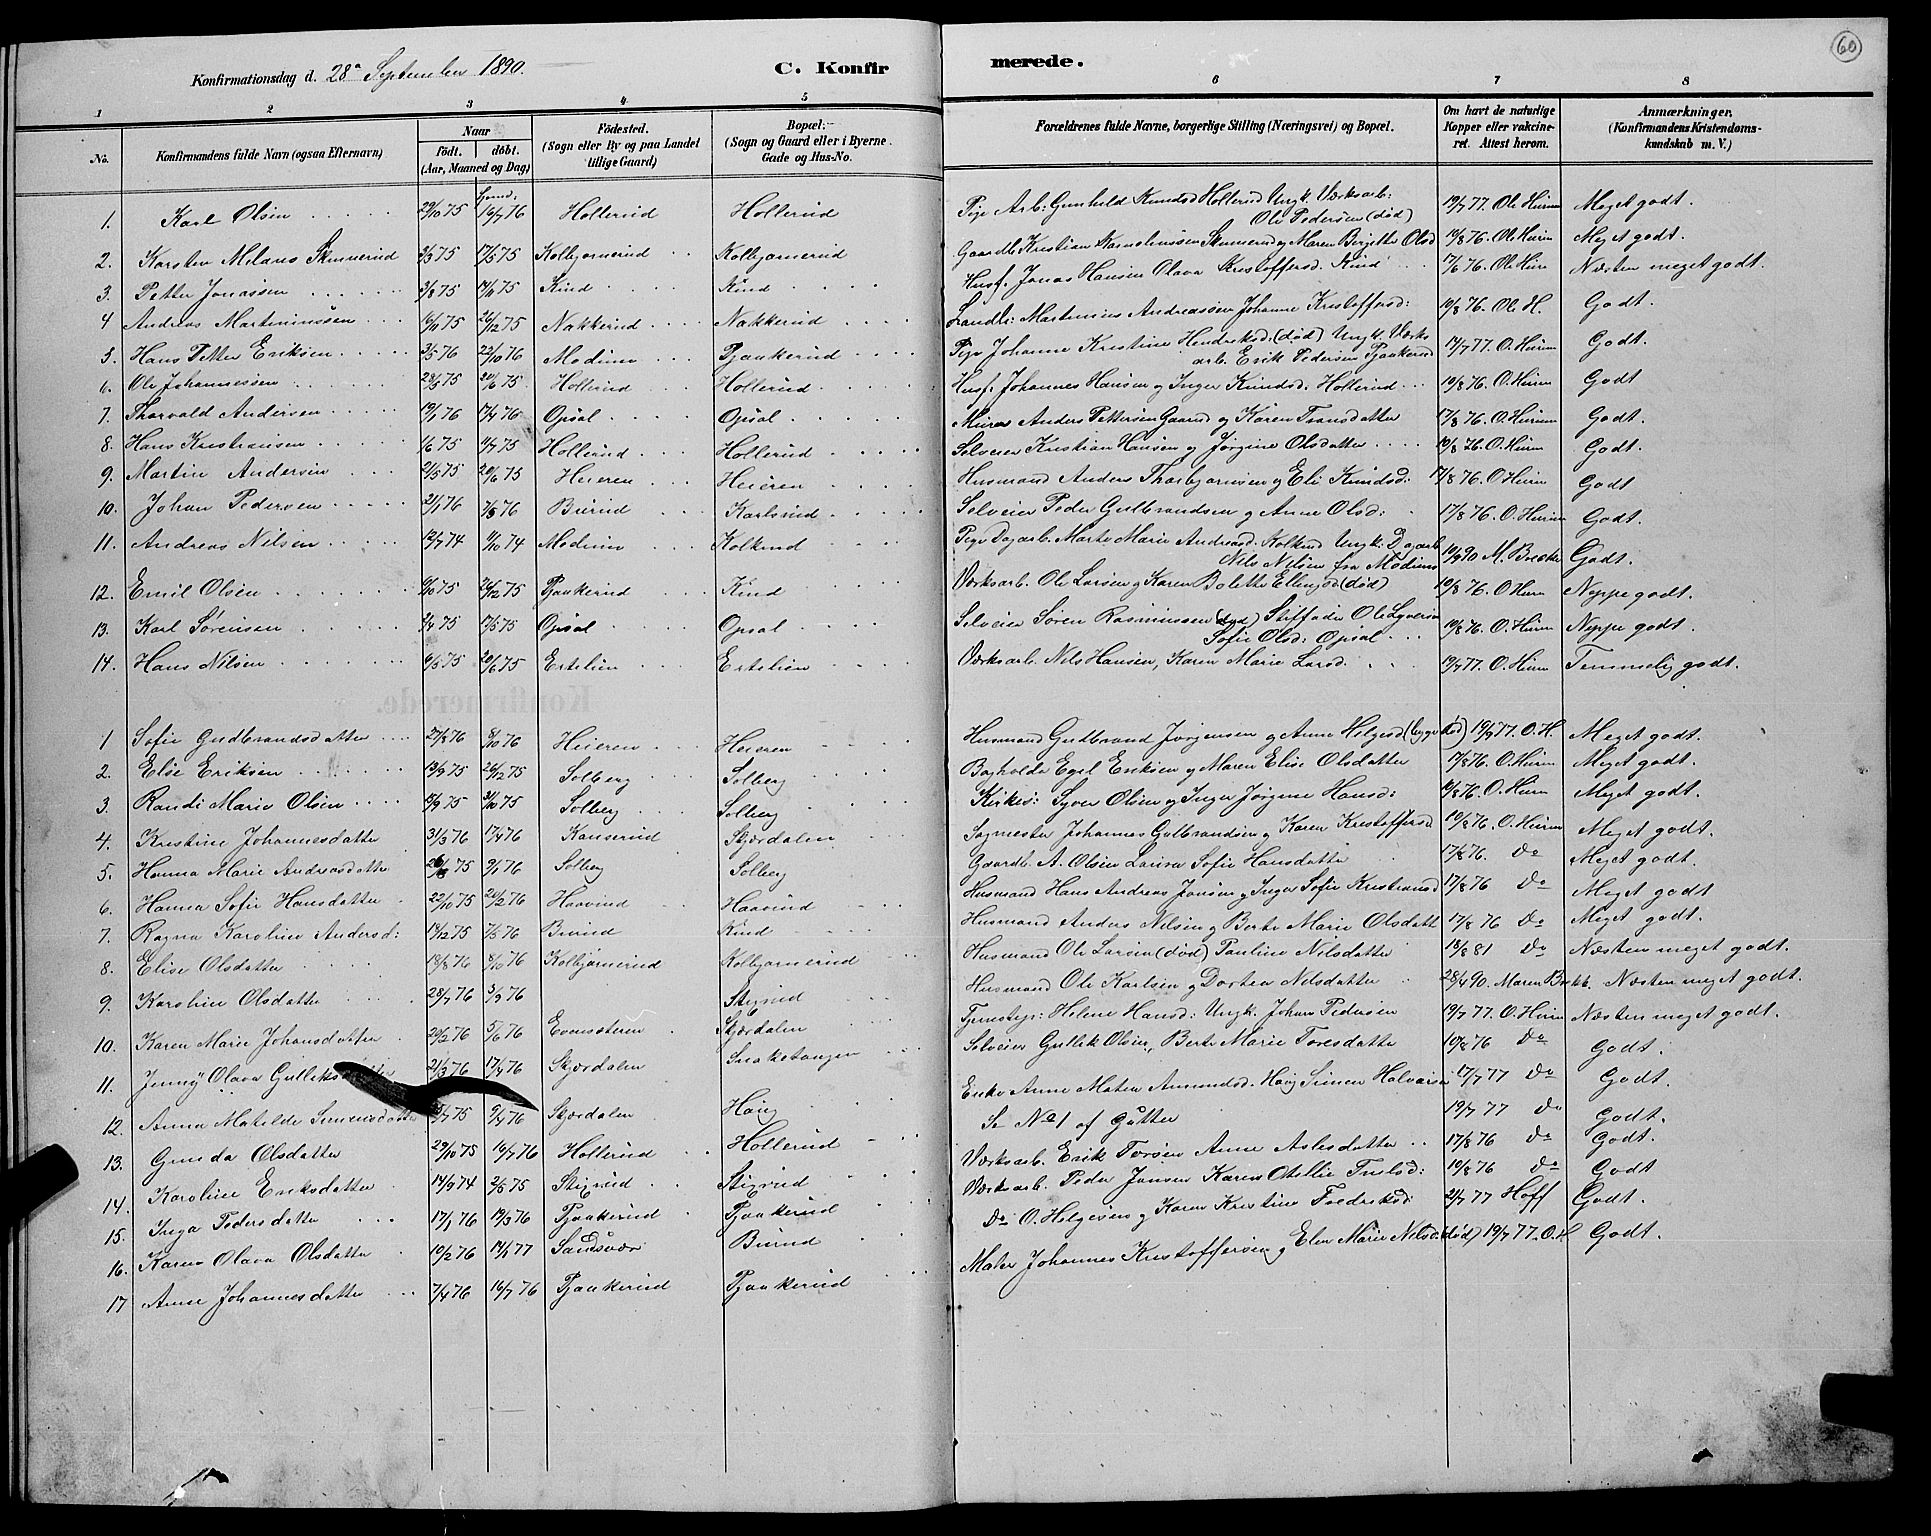 60
Konfirmationsdag d. 28de September 1890.
C. Konfirmerede.
1 2 3 4 5 6 7 8
No.
Konfirmandens fulde Navn (ogsaa Efternavn)
Naar
födt. döbt.
(Aar, Maaned og Dag)
Födested.
(Sogn eller By og paa Landet
tillige Gaard)
Bopæl.
(Sogn og Gaard eller i Byerne
Gade og Hus-No.
Forældrenes fulde Navne, borgerlige Stilling (Næringsvei) og Bopæl.
Om havt de naturlige
Kopper eller vakcine-
ret. Attest herom.
Anmærkninger.
(Konfirmandens Kristendoms-
kundskab m. V.)
1. Karl Olsen 29/10 75 hjemd. 16/7 76 Hollerud Hollerud Pige Arb: Gunhild Knudsd Hollerud Ungk. Værksarb: 19/7 77. Ole Heirm Meget godt.
Ole Pedersen (død)
2. Karsten Milans Skinnerud 3/3 75 17/5 75 Kolbjørnerud Kolbjørnerud Gaardb. Kristian Skinnerud og Maren Birgitte Olsd 19/8 76. Ole Heirm Meget godt.
3. Petter Jonassen 3/8 75 14/11 75 Kind Kind Husf. Jonas Hansen Olava Kristoffersd. Kind 17/6 76. Ole Heirm Næsten meget godt.
4 Andreas Martiniussen 16/11 75 26/12 75 Nakkerud Nakkerud Landh: Martinius Andreassen Johanne Kristoffersd: 19/8 76. Ole H. Godt.
5. Hans Petter Eriksen 3/5 76 22/10 76 Modum Pjaakerud Pige Johanne Kristine Hendriksd (død) Ungk. Værks 17/7 77. O. Heirm Godt.
arb. Erik Pedersen Pjaakerud
6. Ole Johannessen 28/5 75 20/6 75. Hollerud Hollerud Husf. Johannes Hansen og Inger Knudsd. Hollerud 19/8 76. O. Heirm Godt
7. Thorvald Andersen 19/1 76 17/4 76 Opsal Opsal Murer Anders Pettersen Gaard og Karen Fransdatter 17/8 76. O. Heirm Godt.
8. Hans Kristiansen 1/6 75 4/7 75 Hollerud Hollerud Selveier Kristian Hansen og Jørgine Olsdatter 19/8 76. O. Heirm Godt.
9. Martin Andersen 21/5 75 20/6 75 Heieren Heieren Husmand Anders Thorbjørnsen og Eli Knudsd: 17/8 76. O Heirm Godt
10. Johan Pedersen 21/1 76 7/5 76 Burud Karlsrud Selveier Peder Gulbrandsen og Anne Olsd: 17/8 76. O. Heirm Godt.
11. Andreas Nilsen 12/7 74 4/10 74 Modum Kolkind Pige Dagarb. Marte Marie Andreasd. Kolkind Ungk: Dagarb 19/9 90 M. Brekke Godt.
Nils Nilsen fra Modum
12. Emil Olsen 9/10 75 26/12 75 Pjaakerud Kind Værksarb. Ole Larsen og Karen Bolette Ellingsd (død) 19/8 76. O Heirm Neppe godt.
13. Karl Sørensen 2/4 75 17/5 75 Opsal Opsal Selveier Søren Rasmussen (død) Stiffader Ole Syversen 19/8 76. O. Heirm Neppe godt.
Sofie Olsd: Opsal
14. Hans Nilsen 6/5 75 20/6 75 Ertelien Ertelien Værksarb. Nils Hansen, Karen Marie Larsd. 19/7 77. O. Heirm Temmelig godt.
1 Sofie Gudbrandsdatter 27/8 76 8/10 76 Heieren Heieren Husmand Gudbrand Jørgensen og Anne Helgesd (begge død) 19/9 77. O. H. Meget godt.
2. Elise Eriksen 13/9 75 26/12 75 Solberg Solberg Bogholder Egil Eriksen og Maren Elise Olsdatter 17/8 76. O. Heirm Meget godt.
3. Randi Marie Olsen 15/9 75 31/10 75 Solberg Solberg Kirkes: Syver Olsen og Inger Jørgine Hansd: 19/8 76. O. Heirm Meget godt.
4. Kristine Johannesdatter 31/3 76 17/4 76 Kanserud Skjærdalen Sagmester Johannes Gulbrandsen og Karen Kristoffersd 19/8 76. O. Heirm Meget godt.
5. Hanna Marie Andreasdatter 75 9/1 76 Solberg Solberg Gaardb. A. Olsen Laura Sofie Hansdatter 17/8 76. Do Meget godt.
6. Hanna Sofie Hansdatter 22/10 75 20/2 76 Haavind Haavind Husmand Hans Andreas Jonsen og Inger Sofie Kristiansd 17/8 76 Do Meget godt
7. Ragna Karoline Andersd: 14/12 75 7/5 76 Burud Kind Husmand Anders Nilsen og Berte Marie Olsdatter 17/8 76 Do Meget godt.
8. Elise Olsdatter 18/8 76 8/10 76 Kolbjørnerud Kolbjørnerud Husmand Ole Larsen (død) Pauline Nilsdatter 18/8 81 Do Næsten meget godt.
9. Karoline Olsdatter 28/7 76 3/9 76 Stigrud Husmand Ole Karlsen og Dortea Nilsdatter 28/4 90. Maren Brekk. Næsten meget godt.
10. Karen Marie Johansdatter 29/2 76 5/6 76 Evensæteren Skjærdalen Tjenestep: Helene Hansd: Ungk. Johan Pedersen 19/7 77. O. Heirm Næsten meget godt.
11. Jenny Olava Gulliksdatter 21/3 76 17/4 76 Skjærdalen Snakstangen Selveier Gullik Olsen, Berte Marie Toresdatter 19/8 76 Do Godt.
12. Anna Matilde Simensdatter 75 9/4 76 Skjærdalen Haug Enke Anne Matea Amundsd. Haug Simen Halvorsen 17/7 77 Do Godt.
13. Gunda Olsdatter 29/10 75 16/7 76 Hollerud Hollerud Se No 1 af Gutter 19/7 77 Do Godt.
14. Karoline Eriksdatter 14/9 74 2/5 75 Stigrud Stigrud Værksarb. Erik Torsen Anne Aslesdatter 17/8 76 Do Godt.
15. Inga Pedersdatter 17/1 76 19/3 76 Pjaakerud Pjaakerud Værksarb. Peder Jansen Karen Otellie Trulsd: 19/8 76 Do Godt
16. Karen Olava Olsdatter 19/2 76 14/1 77 Sandsvær Burud Do O. Helgesen og Karen Kristine Fredriksd: 2/7 77 Hoff Godt.
17 Anne Johannesdatter 7/4 76 16/7 76 Pjaakerud Pjaakerud Maler Johannes Kristoffersen og Elen Marie Nilsd. (død) 19/7 77. O. H Godt.